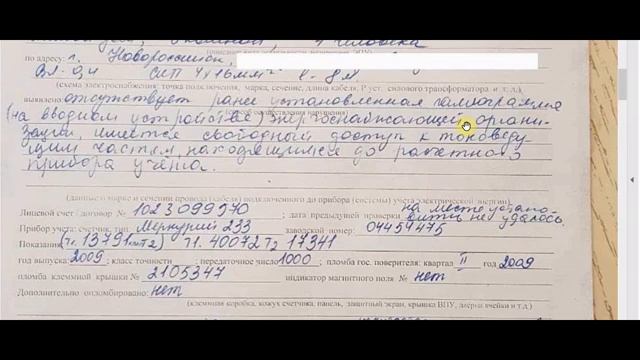 4 человека
по адресу: г. Новороссийск,
Вл. ОЧ СИП 4х16мм² ℓ-8м.
(схема электроснабжения: точка подключения, марка, сечение, длина кабеля, Р уст. силового трансформатора и т.д.)
выявлено: отсутствует ранее установленная голлограмма
(на вводном устройстве) энергоснабжающей органи-
зации, имеется свободный доступ к токоведу-
щим частям, находящимся до расчетного
прибора учета.
(данные о марке и сечении провода (кабеля) подключенного до прибора (системы) учета электрической энергии)
Лицевой счет (договор № 1023099570 ; дата предыдущей проверки на месте устано-
вить не удалось.
Прибор учета: счетчик, тип Меркурий 233 заводской номер: 04454475
Показания (Т1. 13791 Т2) Т1. 40072 Т2 17341
год выпуска: 2009; класс точности ; передаточное число 1000 ; пломба гос. поверителя: квартал II год 2009
пломба клеммной крышки № 2105347 индикатор магнитного поля № нет
Дополнительно опломбировано: нет
(клеммная коробка, кожух счетчика, панель, защитный экран, крышка ВПУ, дверца ячейки и т.д.)